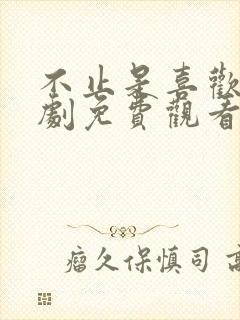 不止是喜歡
劇免費觀看
瘤久保慎司 高